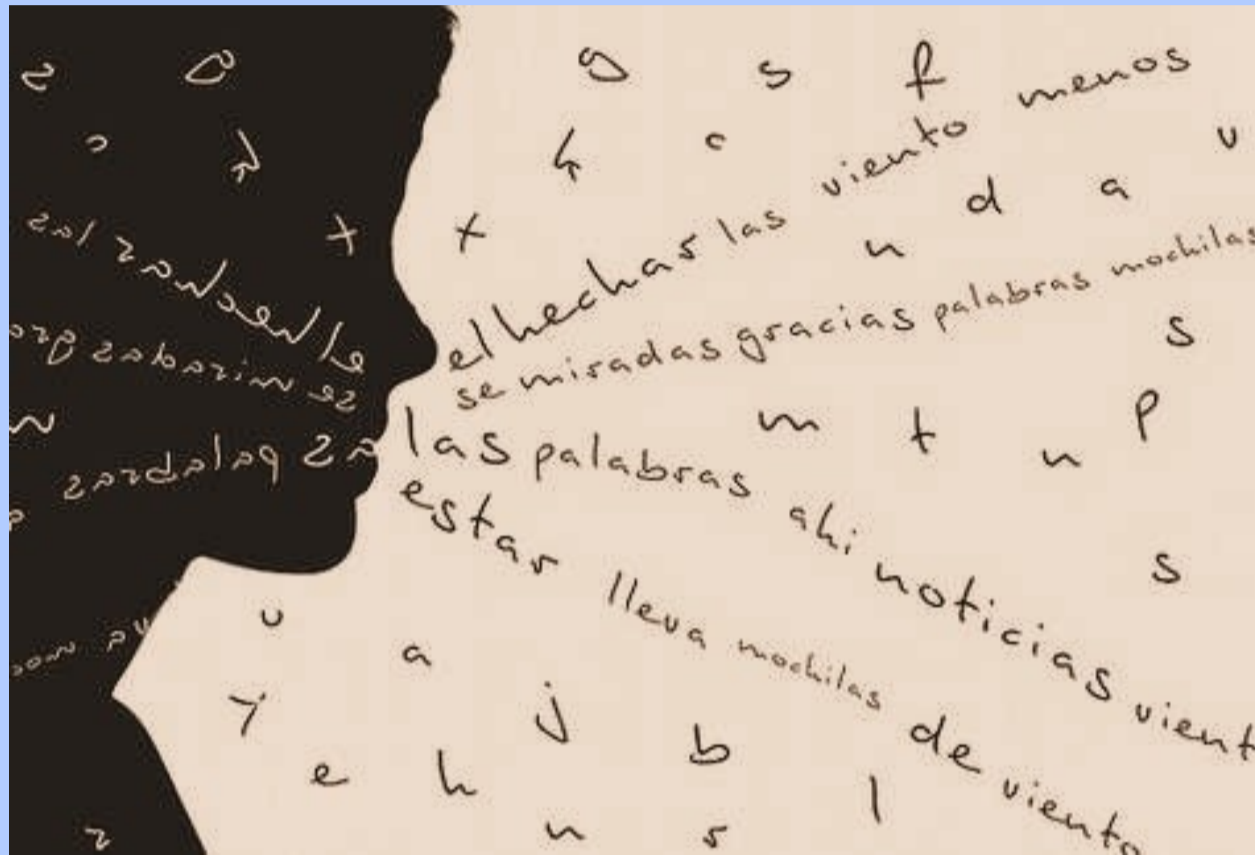 g s f
el hechar las viento menos
c
v
x
n d a
se miradas gracias palabras mochilas
s
m t n p
las palabras ahi noticias vient
s
estar lleva mochilas de viento
u a
j b
e h
n s l